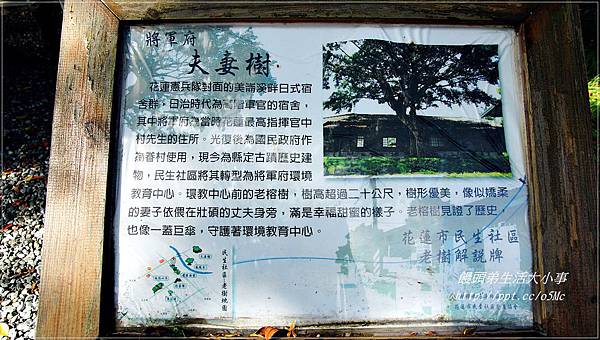 將軍府
夫妻樹
花蓮憲兵隊對面的美崙溪畔日式宿
舍群，日治時代為高階軍官的宿舍，
其中將軍府為當時花蓮最高指揮官中
村先生的住所。光復後為國民政府作
為眷村使用，現今為縣定古蹟歷史建
物，民生社區將其轉型為將軍府環境
教育中心。環教中心前的老榕樹，樹高超過二十公尺，樹形優美，像似嬌柔
的妻子依偎在壯碩的丈夫身旁，滿是幸福甜蜜的樣子。老榕樹見證了歷史，
也像一蓋巨傘，守護著環境教育中心。
民生社區老樹地圖
花蓮市民生社區
老樹解說牌
饅頭弟生活大小事
http://ppt.cc/o5Mc